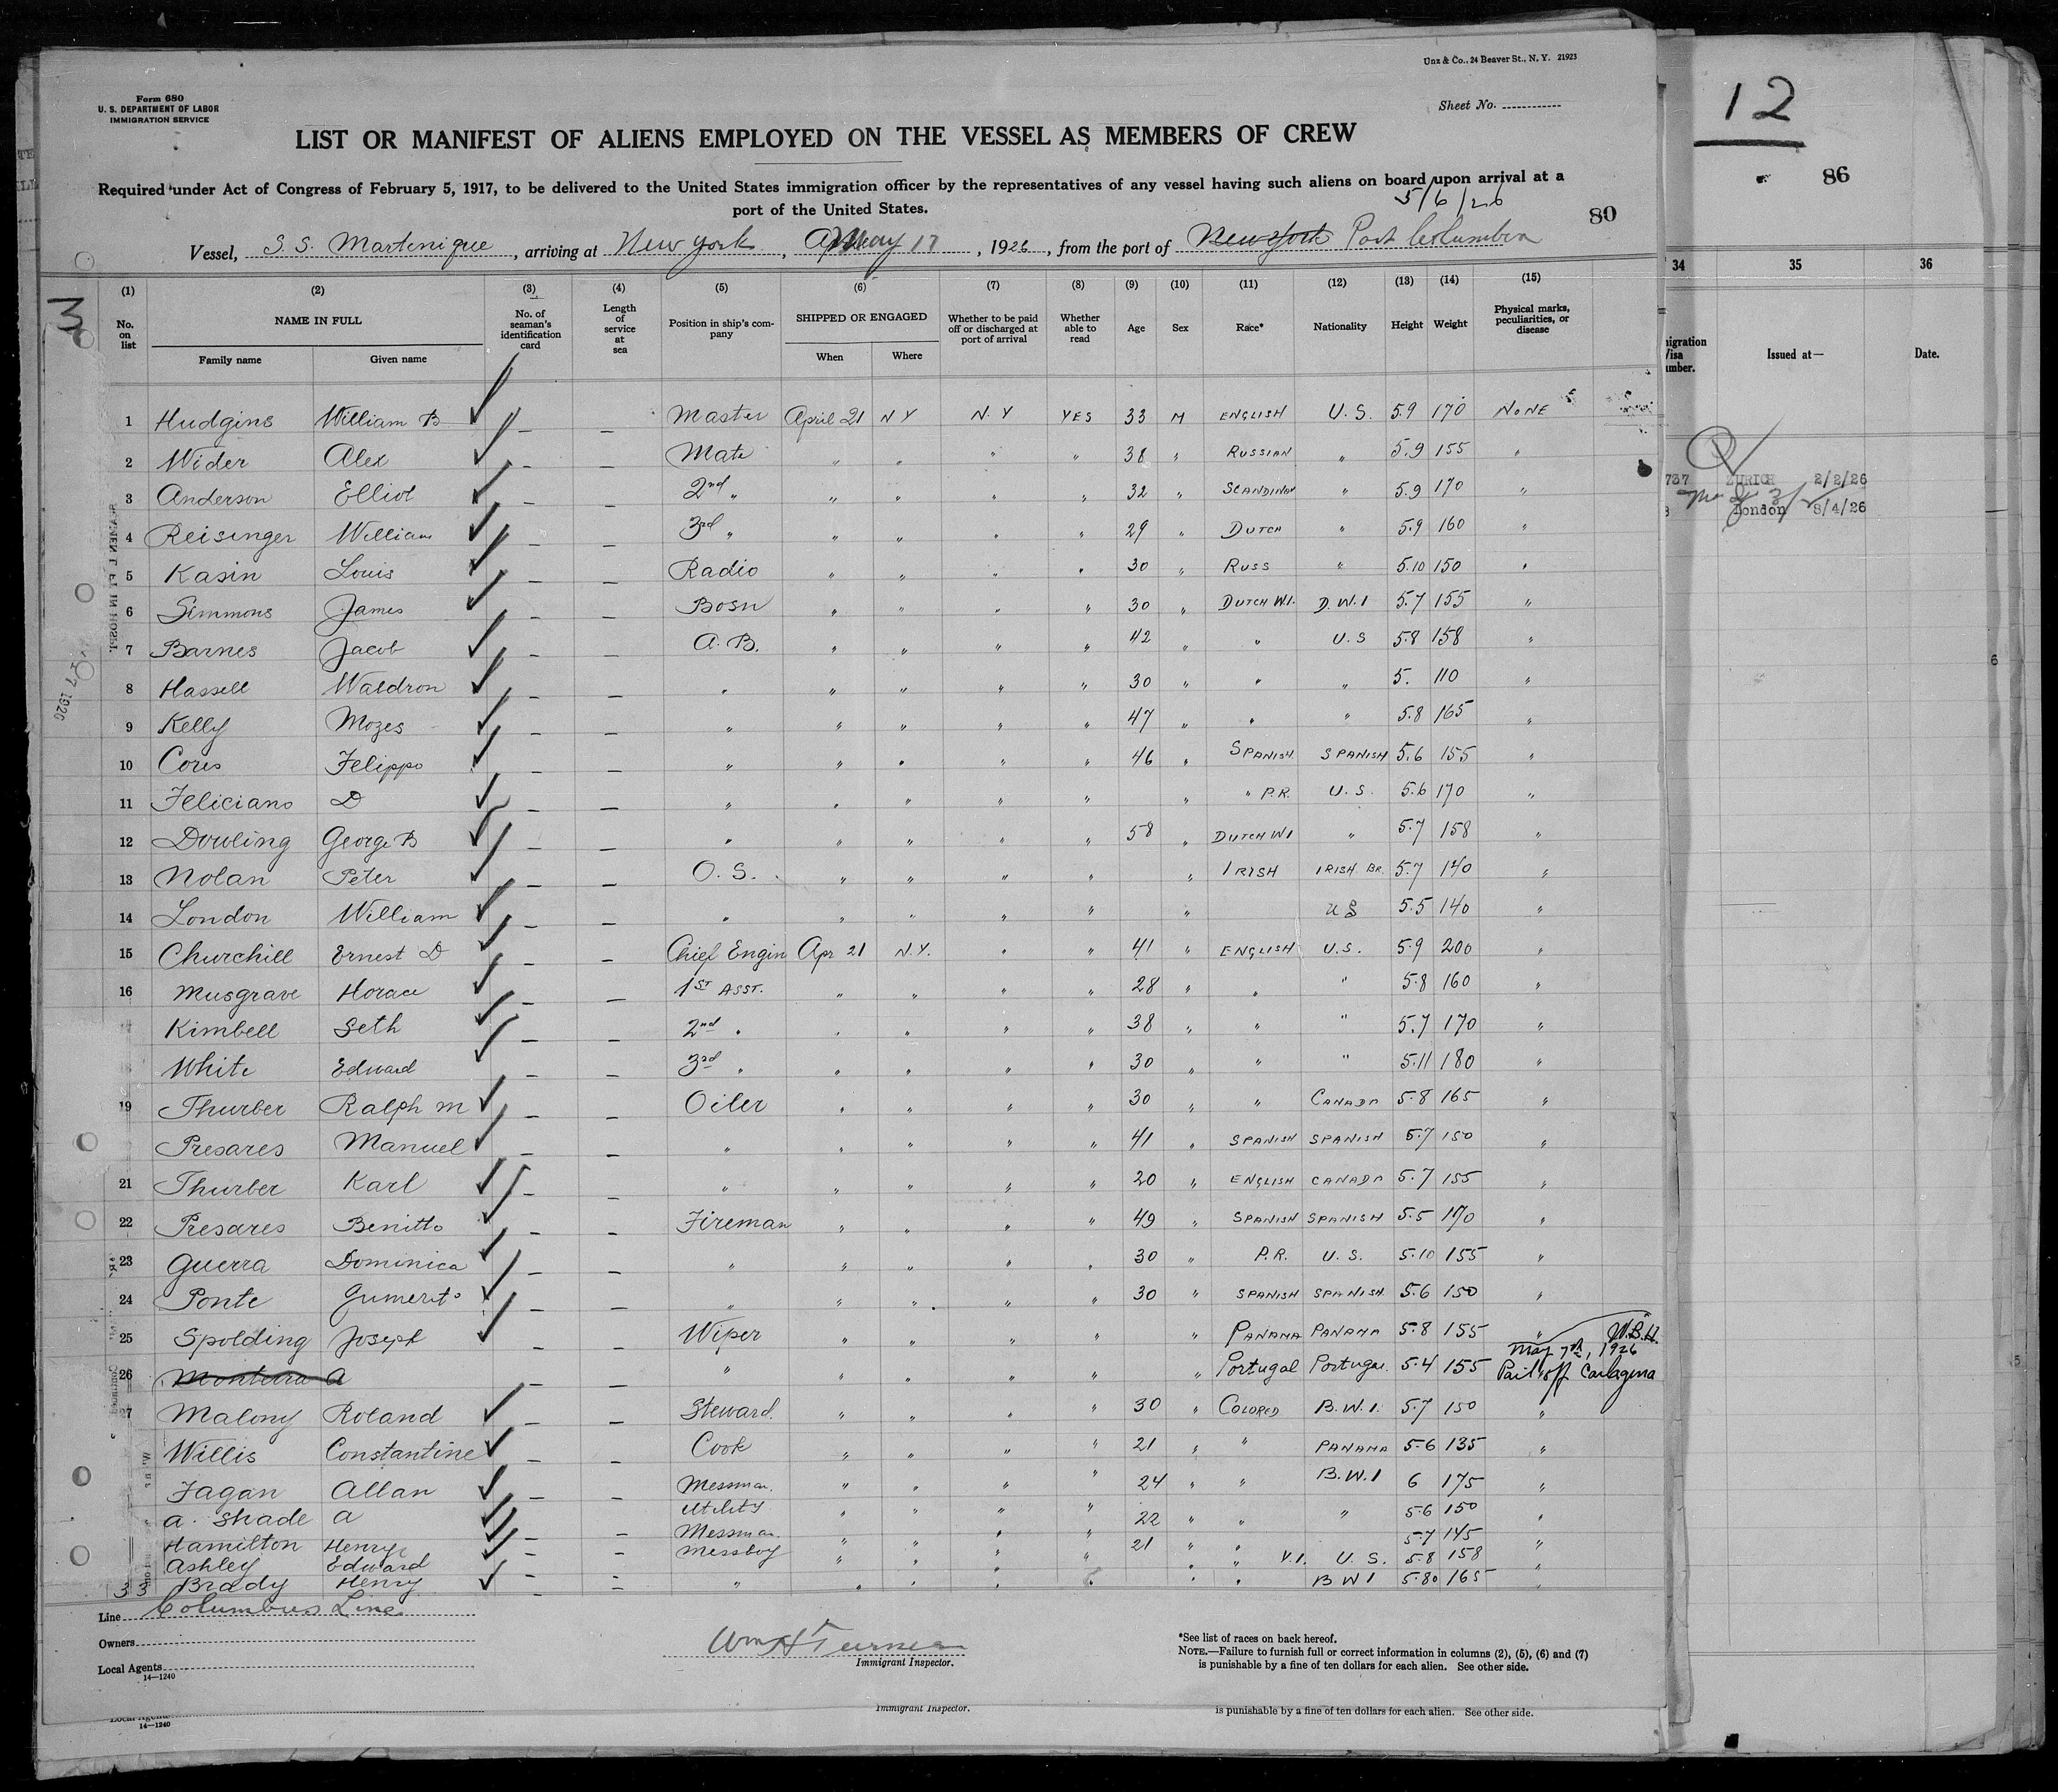 Unz & Co., 24 Beaver St., N. Y. 21923
Form 680
U. S. DEPARTMENT OF LABOR
IMMIGRATION SERVICE
Sheet No.
12
86
LIST OR MANIFEST OF ALIENS EMPLOYED ON THE VESSEL AS MEMBERS OF CREW
Required under Act of Congress of February 5, 1917, to be delivered to the United States immigration officer by the representatives of any vessel having such aliens on board upon arrival at a
port of the United States.
5/6/26
80
Vessel, S.S. Martenique, arriving at New York, May 17, 1926, from the port of New York Port Columbia
3
(1) (2) (3) (4) (5) (6) (7) (8) (9) (10) (11) (12) (13) (14) (15) 34 35 36
No. on list NAME IN FULL Family name Given name No. of seaman's identification card Length of service at sea Position in ship's company SHIPPED OR ENGAGED When Where Whether to be paid off or discharged at port of arrival Whether able to read Age Sex Race* Nationality Height Weight Physical marks, peculiarities, or disease Issued at— Date.
1 Hudgins William B — — Master April 21 N Y N.Y YES 33 M ENGLISH U.S. 5.9 170 NONE
2 Wider Alex — — Mate " " " " 38 " RUSSIAN " 5.9 155 "
3 Anderson Elliot — — 2nd " " " " " 32 " SCANDINAV " 5.9 170 "
4 Reisinger William — — 3rd " " " " " 29 " DUTCH " 5.9 160 "
5 Kasin Louis — — Radio " " " " 30 " RUSS " 5.10 150 "
6 Simmons James — — Bosn " " " " 30 " DUTCH W.I. D.W.I 5.7 155 "
7 Barnes Jacob — — A.B. " " " " 42 " " U.S 5.8 158 "
8 Hassell Waldron — — " " " " " 30 " " " 5. 110 "
9 Kelly Mozes — — " " " " " 47 " " " 5.8 165 "
10 Cores Felippo — — " " " " " 46 " SPANISH SPANISH 5.6 155 "
11 Feliciano D — — " " " " " " " P.R. U.S. 5.6 170 "
12 Dowling George B — — " " " " " 58 " DUTCH W I " 5.7 158 "
13 Nolan Peter — — O.S. " " " " " IRISH IRISH BR. 5.7 140 "
14 London William — — " " " " " " US 5.5 140 "
15 Churchill Ernest D — — Chief Engin Apr 21 N.Y. " " 41 " ENGLISH U.S. 5.9 200 "
16 Musgrave Horace — — 1ST ASST. " " " " 28 " " " 5.8 160 "
Kimbell Seth — — 2nd " " " " " 38 " " " 5.7 170 "
White Edward — — 3rd " " " " " 30 " " " 5.11 180 "
19 Thurber Ralph M — — Oiler " " " " 30 " " CANADA 5.8 165 "
Presares Manuel — — " " " " " 41 " SPANISH SPANISH 5.7 150 "
21 Thurber Karl — — " " " " " 20 " ENGLISH CANADA 5.7 155 "
22 Presares Benitto — — Fireman " " " " 49 " SPANISH SPANISH 5.5 170 "
23 Guerra Dominica — — " " " " " 30 " P.R. U.S. 5.10 155 "
24 Ponte Gumerito — — " " " " " 30 " SPANISH SPANISH 5.6 150 "
25 Spolding Joseph — — Wiper " " " " " PANAMA PANAMA 5.8 155 " W.B.H.
May 7th, 1926
26 Monteira A — — " " " " " " Portugal Portugal 5.4 155 Paid off Cartagena
27 Malony Roland — — Steward. " " " " 30 " COLORED B.W.I. 5.7 150 "
Willis Constantine — — Cook " " " " 21 " " PANAMA 5.6 135 "
Fagan Allan — — Messman. " " " " 24 " " B.W.I 6 175 "
a. Shade a Utility " " " " 22 " " " 5.6 150 "
Hamilton Henry — — Messman. " " " " 21 " " 5.7 145 "
Ashley Edward — — Messboy " " " " " " V.I. U.S. 5.8 158 "
33 Brady Henry — — " " " " " " " B W I 5.80 165 "
ZURICH 2/2/26
London 8/4/26
Line Columbus Line
Owners
Local Agents
14—1240
Wm H Turner
Immigrant Inspector.
*See list of races on back hereof.
NOTE.—Failure to furnish full or correct information in columns (2), (5), (6) and (7)
is punishable by a fine of ten dollars for each alien. See other side.
Immigrant Inspector.
is punishable by a fine of ten dollars for each alien. See other side.
14—1240